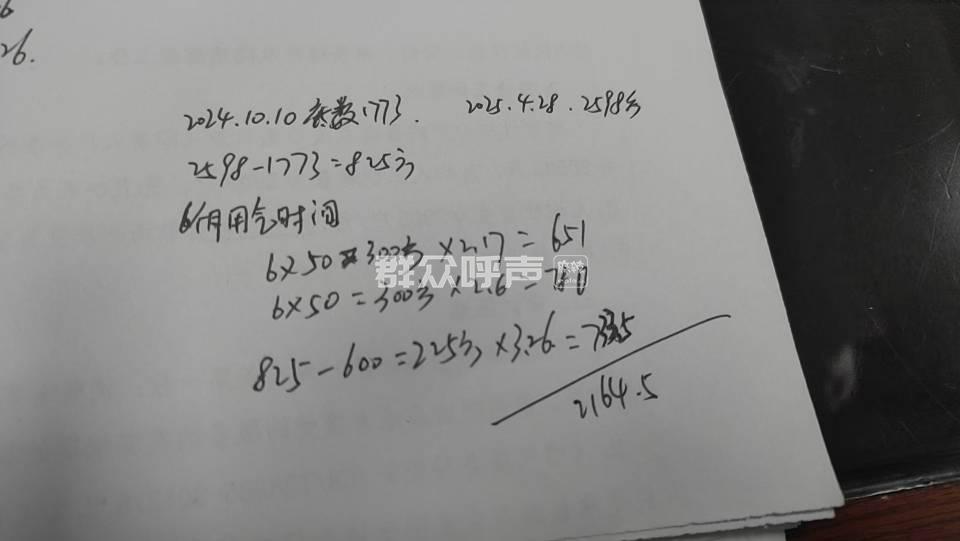 6
26.
2024.10.10 底数1773. 2025.4.28. 2598方
2598-1773=825方
6个月用气时间
6×50=300方×2.17=651
群众呼声
6×50=300方×2.6=780
825-600=225方×3.26=733.5
2164.5